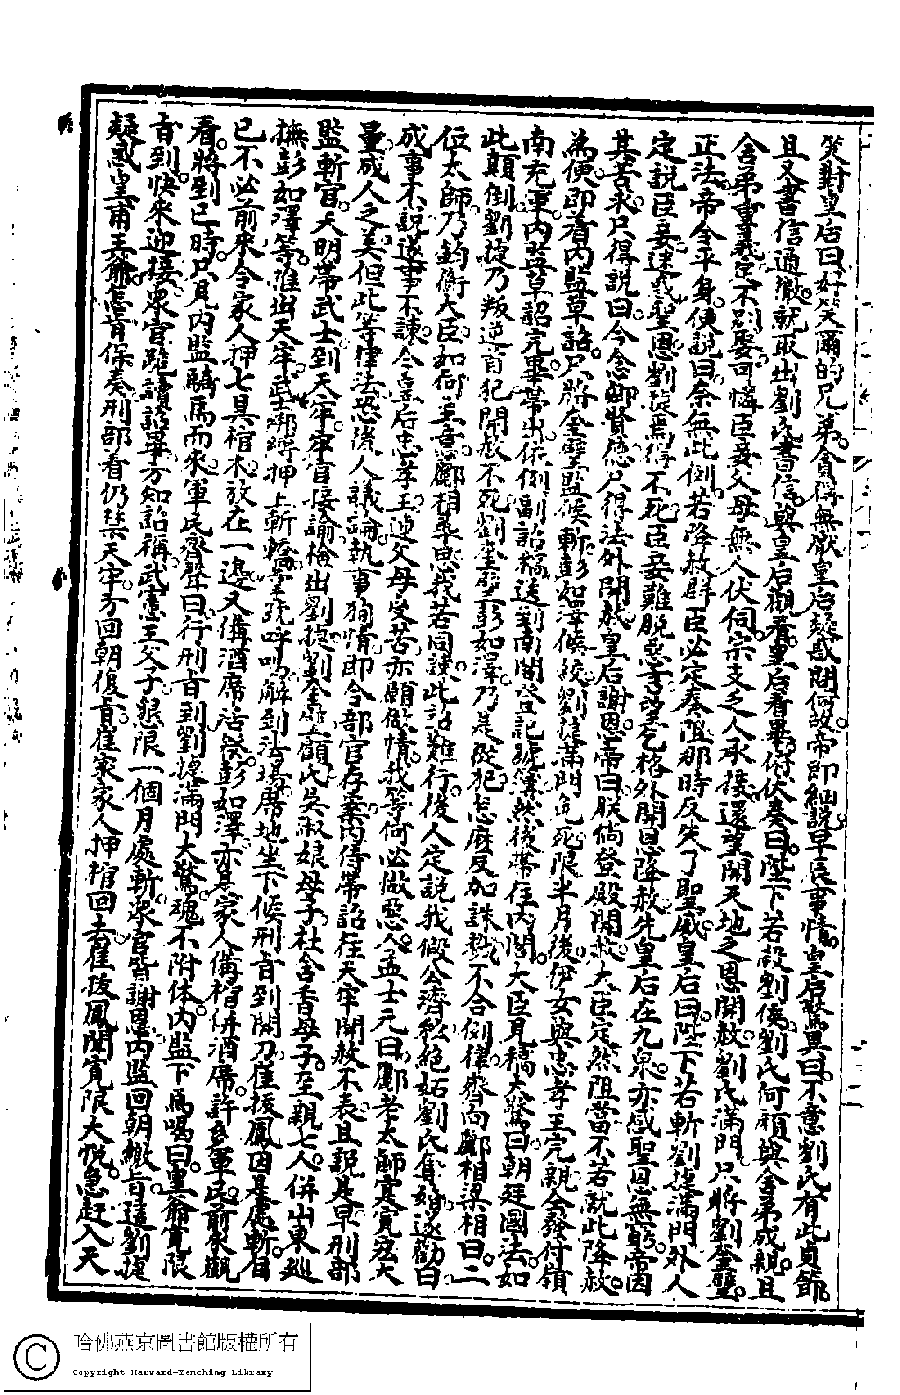 笑對皇后曰好笑爾的兄弟貪得無厭皇后疑惑問何故帝即細說早民事情皇后驚異曰不意劉氏有此貞節
且又書信通徹就取出劉氏書信與皇后觀看皇后看畢俯伏奏曰陛下若殺劉倢劉氏何顏與舍弟成親且
舍弟重義定不別娶可憐臣妾父母無人伏伺宗支乏人承接還望開天地之恩開赦劉氏滿門只將劉奎璧
正法帝令平身便說曰奈無此例若降赦辟臣必定奏阻那時反失了聖威皇后曰陛下若斬劉捷滿門外人
定說臣妾迷惑聖恩劉捷焉得不死臣妾難脫惡言望乞格外開恩降赦先皇后在九泉亦感聖恩無窮帝因
其苦求只得說曰今念御賢德只得法外開赦皇后謝恩帝曰朕倘登殿開赦大臣定然阻當不若就此降赦
為便即着內監草詔只將奎璧監候斬彭如澤候絞劉捷滿門免死限半月後伊女與忠孝王完親全發付嶺
南充軍內監草詔完畢帶出依例副詔稿送到南閣登記號簿然後帶往內閣大臣見稿大驚曰朝廷國法如
此顛倒劉捷乃叛逆首犯開赦不死劉奎璧彭如澤乃是從犯怎麻反加誅戮不合例律齊向酈相梁相曰二
位太師乃鈞衡大臣如何主意酈相尋思我若同諫此詔難行後人定說我假公濟私絕妬劉氏隻婚遂勸曰
成事不說遂事不諫今皇后忠孝王迎父母受苦亦願做情我等何必做惡人孟士元曰酈老太師寔寬宏大
量成人之美但此等律法恐後人議論執事狥情即令部官存案內侍帶詔往天牢開赦不表且說是早刑部
監斬官天明帶武士到天牢牢官接諭愉出劉捷劉奎璧顧氏吳淑娘母子杜含香母子至親七人併山東廵
撫彭如澤等推出天牢武綁縛押上斬轎望號呼叫解到法場席地坐下候刑旨到開刀崔援鳳因是處斬自
已不必前來令家人押七具棺木放在一邊又備酒席活祭彭如澤亦是家人備棺併酒席許多軍民前來觀
看將到已時只見內監騎馬而來軍民齊聲曰行刑旨到劉捷滿門大驚魂不附体內監下馬喝曰皇爺寬限
旨到快來迎接眾官跪讀詔畢方知詔稱武憲王父子懇限一個月處斬眾官皆謝恩內監回朝繳旨這劉捷
疑惑皇甫王爺怎肯保奏刑部看仍禁天牢方回朝復旨崔家家人押棺回去崔援鳳聞寬限大悅急赶入天
哈佛燕京圖書館版權所有
Copyright Harvard-Yenching Library